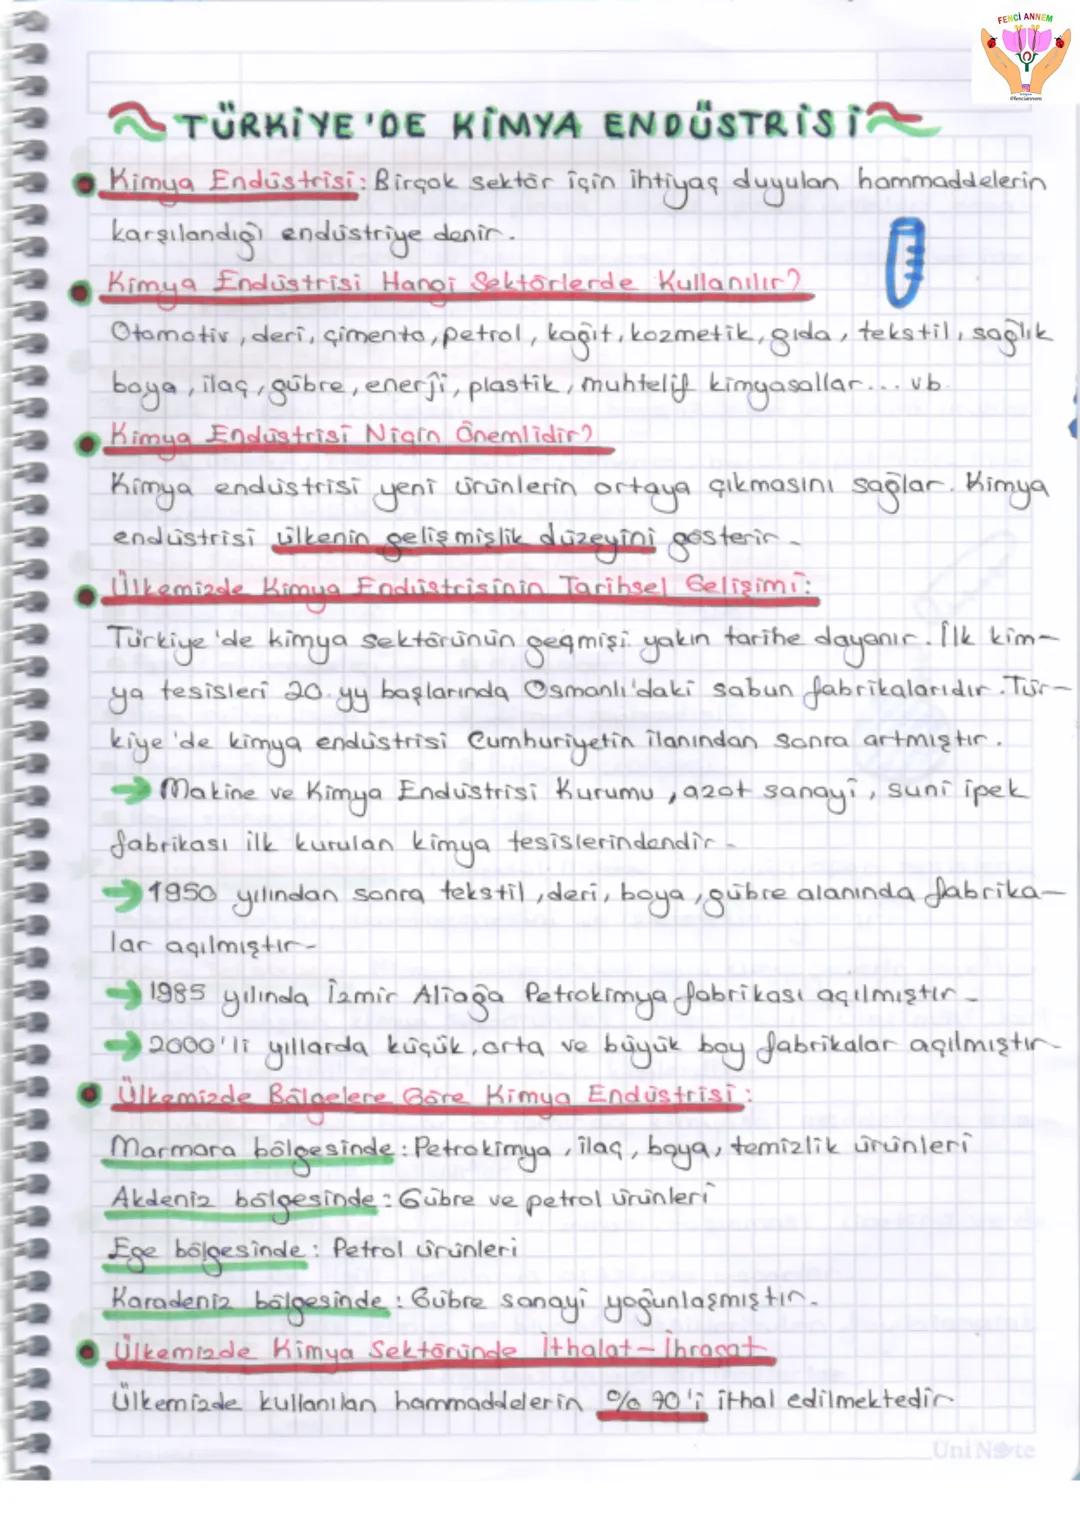 FENCİ ANNEM
@fenciannem
TÜRKİYE'DE KİMYA ENDÜSTRİSİ
Kimya Endüstrisi: Birçok sektör için ihtiyaç duyulan hammaddelerin
karşılandığı endüstriye denir.
Kimya Endüstrisi Hangi Sektörlerde Kullanılır?
Otomotiv, deri, çimento, petrol, kağıt, kozmetik, gıda, tekstil, sağlık
boya, ilaç, gübre, enerji, plastik, muhtelif kimyasallar... vb.
Kimya Endüstrisi Niçin Önemlidir?
Kimya endüstrisi yeni ürünlerin ortaya çıkmasını sağlar. Kimya
endüstrisi ülkenin gelişmişlik düzeyini gösterir.
Ülkemizde Kimya Endüstrisinin Tarihsel Gelişimi:
Türkiye'de kimya sektörünün geçmişi yakın tarihe dayanır. İlk kim-
ya tesisleri 20. yy başlarında Osmanlı'daki sabun fabrikalarıdır. Tür-
kiye'de kimya endüstrisi Cumhuriyetin ilanından sonra artmıştır.
→ Makine ve Kimya Endüstrisi Kurumu, azot sanayi, suni ipek
fabrikası ilk kurulan kimya tesislerindendir.
→ 1950 yılından sonra tekstil, deri, boya, gübre alanında fabrika-
lar açılmıştır.
→ 1985 yılında İzmir Aliağa Petrokimya fabrikası açılmıştır.
→ 2000'li yıllarda küçük, orta ve büyük boy fabrikalar açılmıştır.
Ülkemizde Bölgelere Göre Kimya Endüstrisi:
Marmara bölgesinde: Petrokimya, ilaç, boya, temizlik ürünleri
Akdeniz bölgesinde: Gübre ve petrol ürünleri
Ege bölgesinde: Petrol ürünleri
Karadeniz bölgesinde: Gübre sanayi yoğunlaşmıştır.
Ülkemizde Kimya Sektöründe İthalat - İhracat
Ülkemizde kullanılan hammaddelerin %70'i ithal edilmektedir.
Uni Note